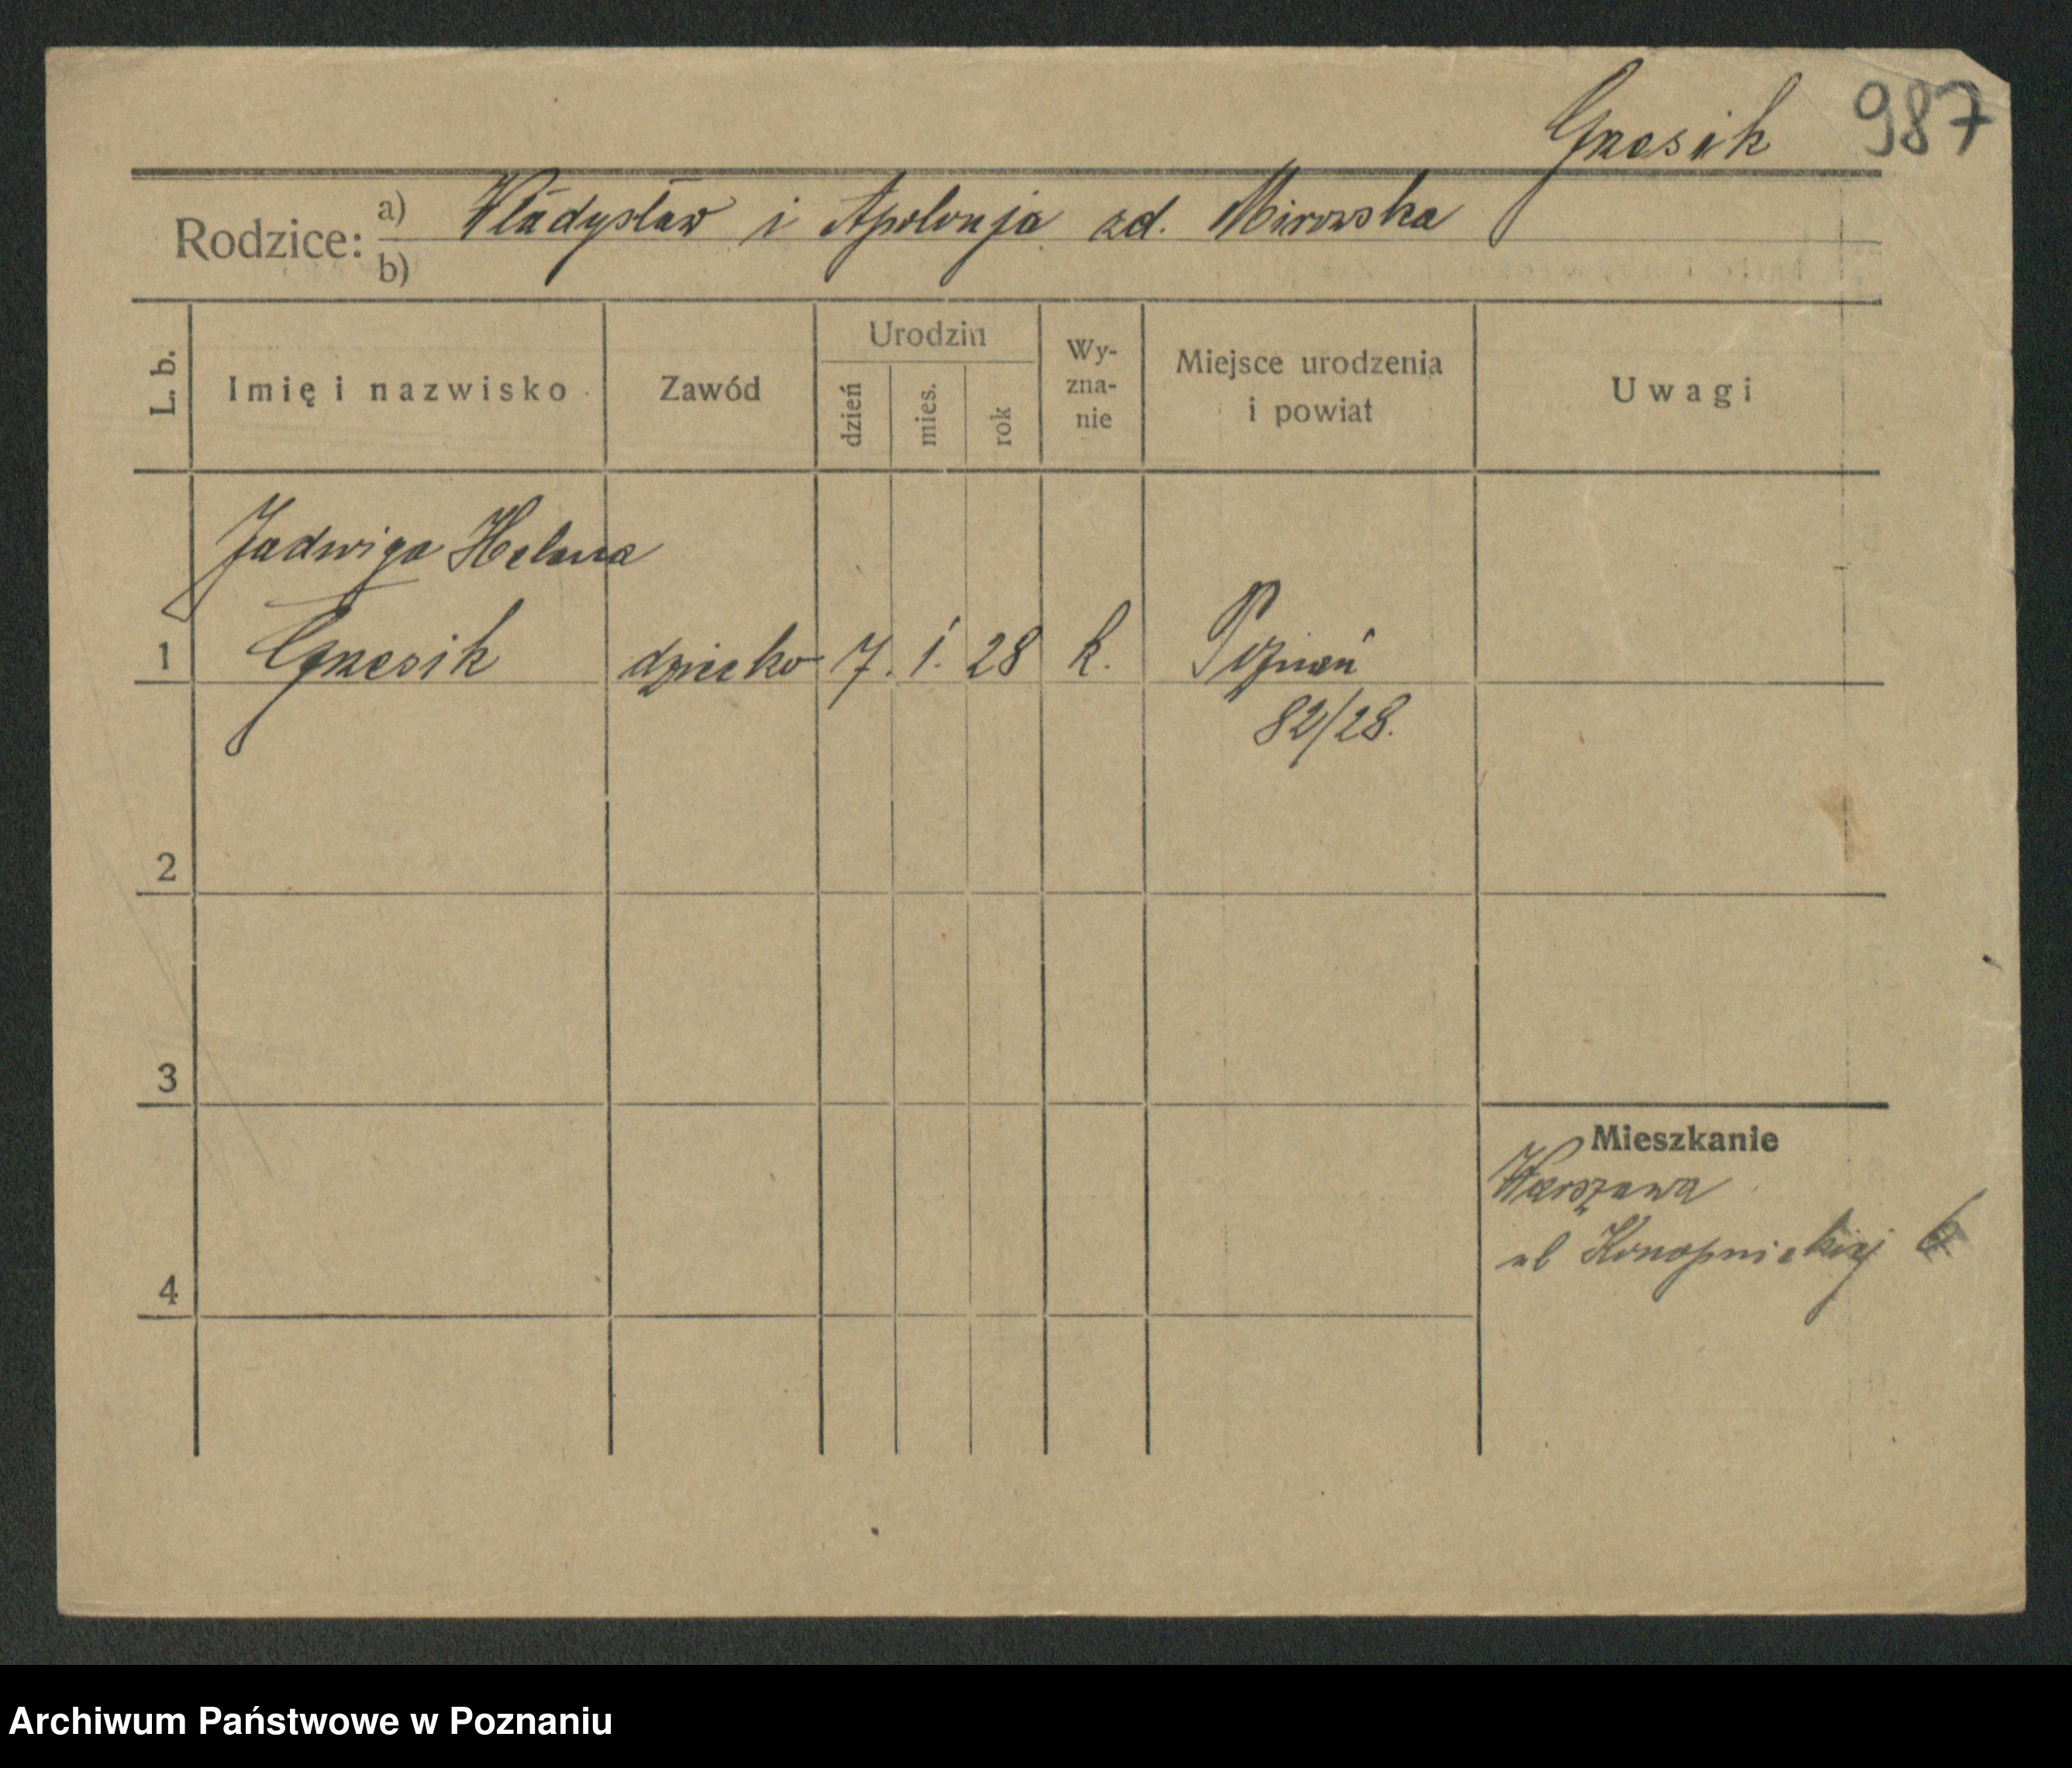 Grzesik 987
Rodzice: a) Władysław i Apolonja zd. Mirowska
b)
L. b.
Imię i nazwisko
Zawód
Urodzin
dzień
mies.
rok
Wy-
zna-
nie
Miejsce urodzenia
i powiat
Uwagi
Jadwiga Helena
1 Grzesik dziecko 7. 1. 28 k. Poznań
82/28.
2
3
Mieszkanie
Warszawa
ul Konopnickiej 6
4
Archiwum Państwowe w Poznaniu